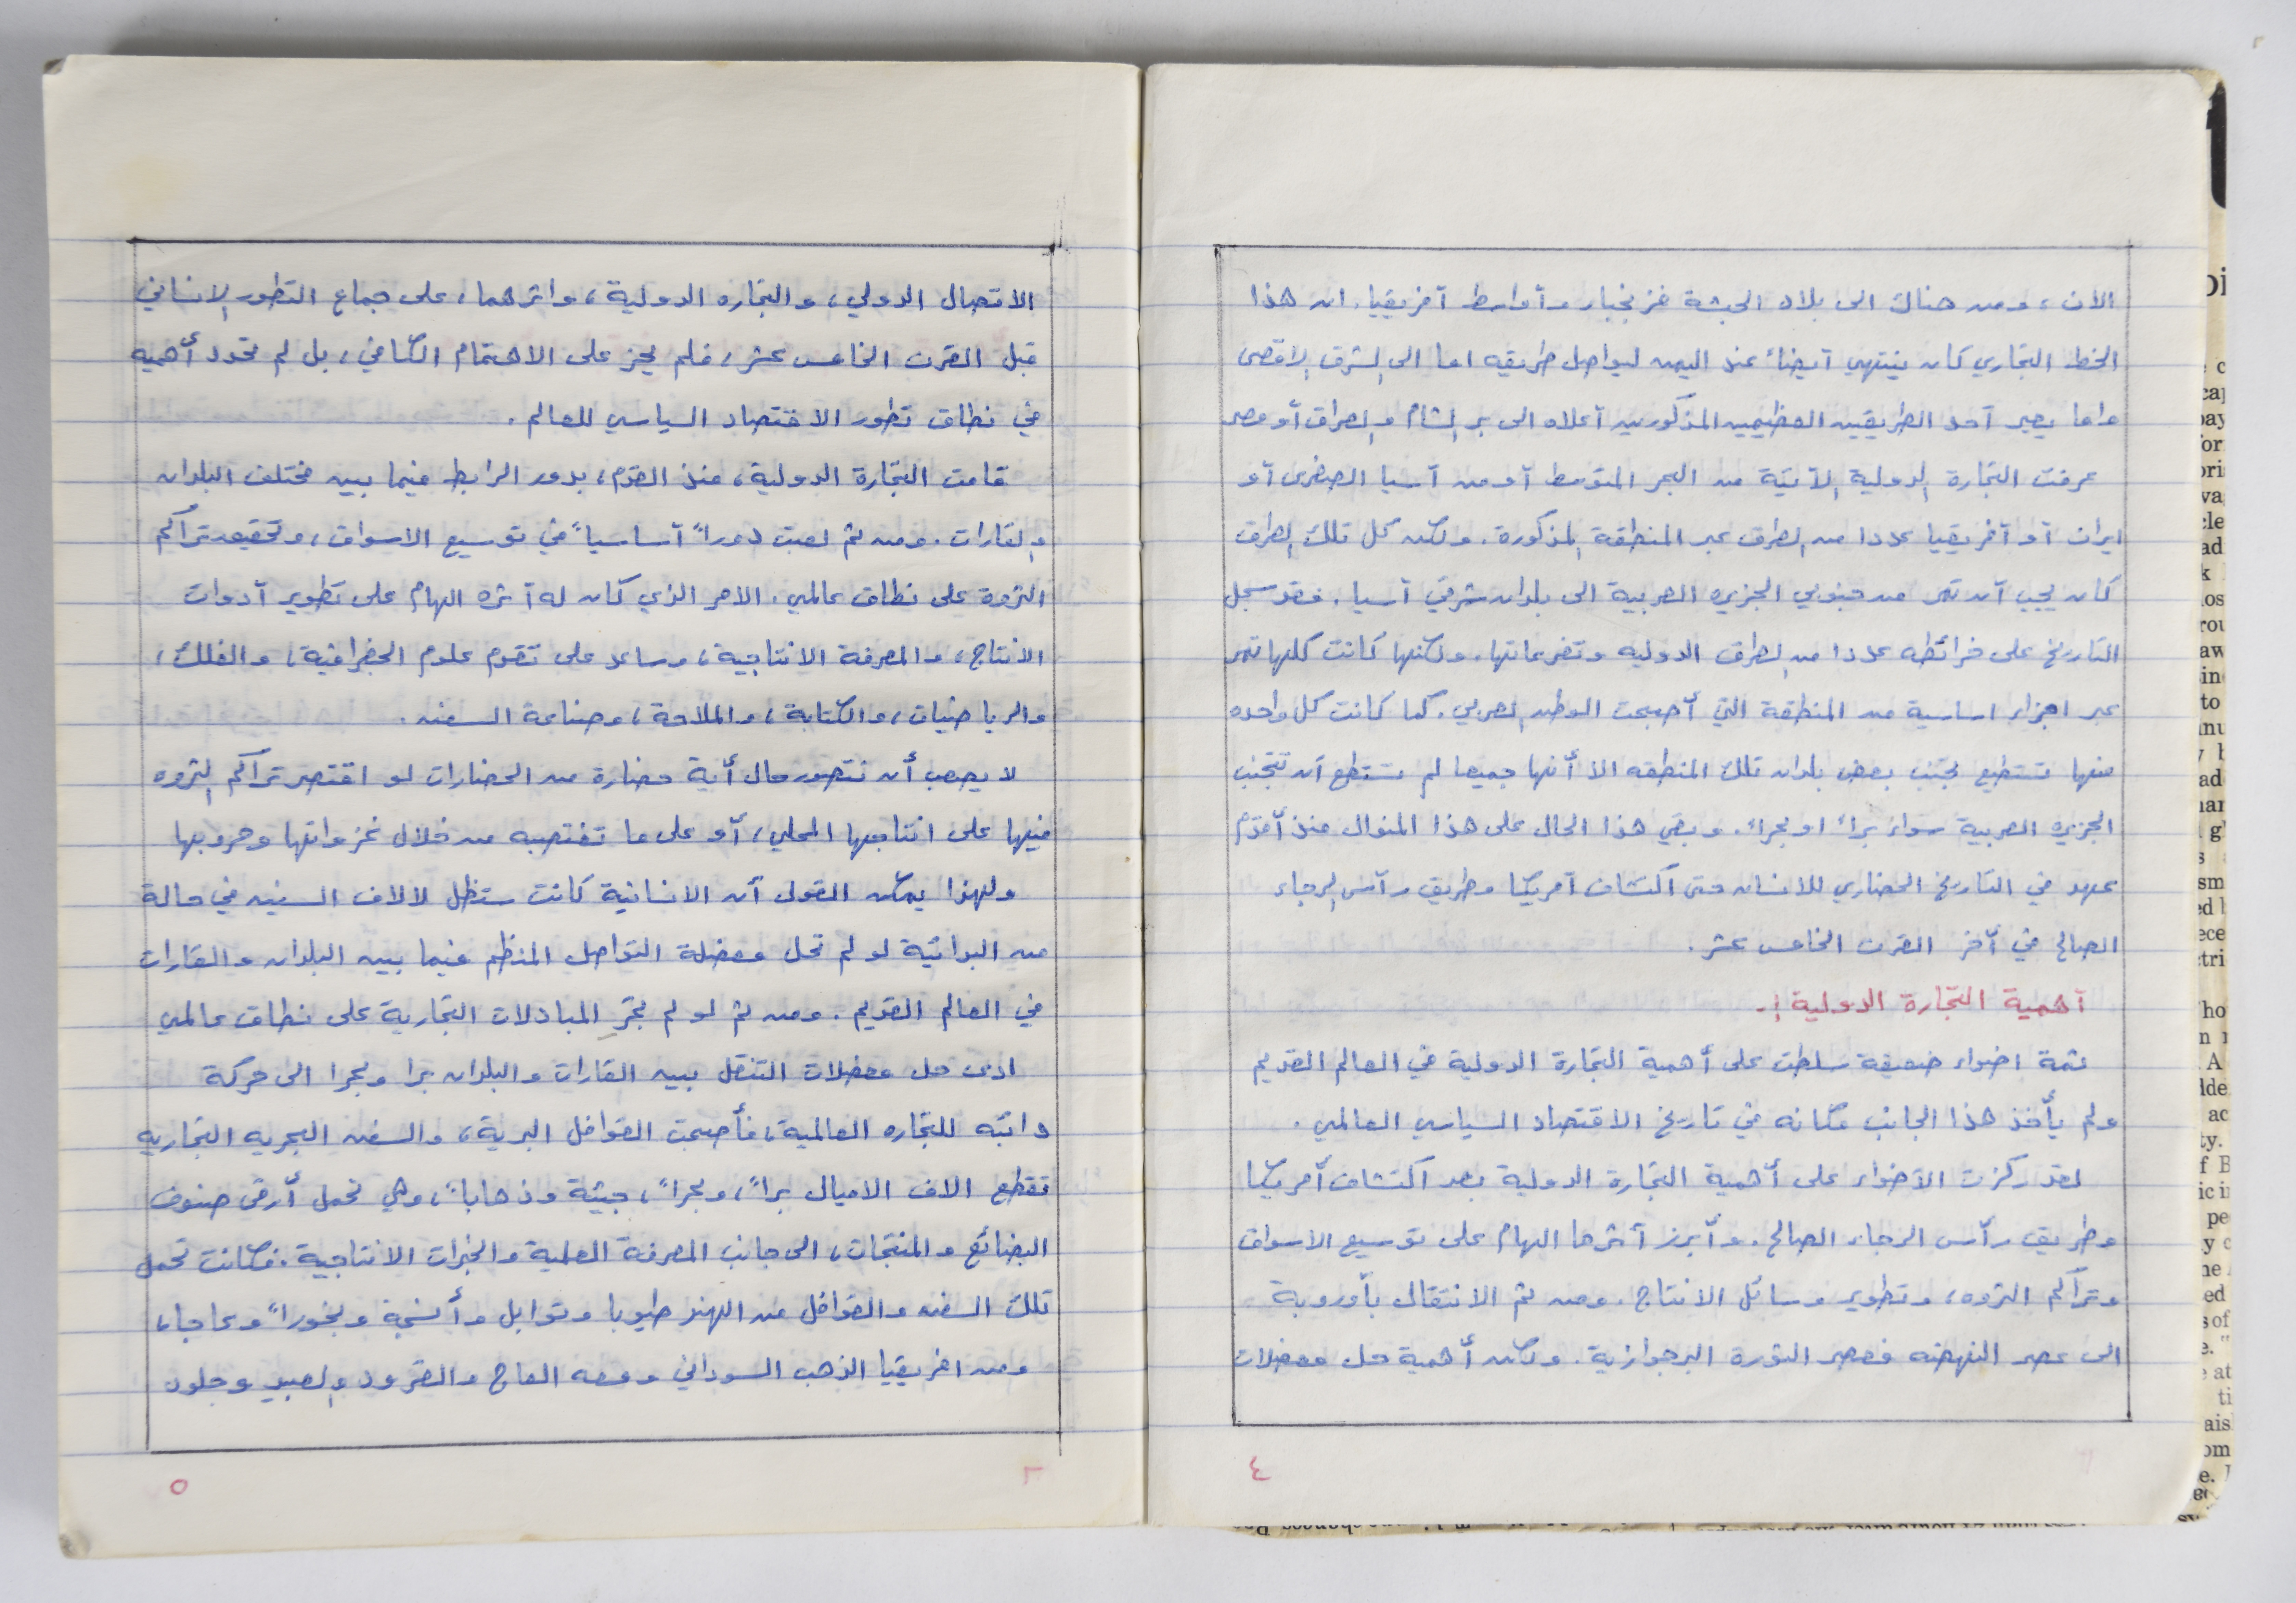 الان، ومن هناك الى بلاد الحبشة فزنجبار وأواسط آفريقيا. ان هذا
الخط التجاري كان ينتهي آيضاً عند اليمن ليواصل طريقه اما الى الشرق الاقصى
واما يعبر آحد الطريقين العظيمين المذكورين آعلاه الى بر الشام والعراق آو مصر
عرفت التجارة الدولية الآتية من البحر المتوسط آو من آسيا الصغرى آو
ايران آو آفريقيا عددا من الطرق عبر المنطقة المذكورة. ولكن كل تلك الطرق
كان يجب آن تمر من جنوبي الجزيره العربية الى بلدان شرقي آسيا. فقد سجل
التاريخ على خرائطه عددا من الطرق الدوليه وتفرعاتها. ولكنها كانت كلها تمر
عبر اجزاء اساسية من المنطقة التي أصبحت الوطن العربي. كما كانت كل واحده
منها تستطيع تجنب بعض بلدان تلك المنطقه الا أنها جميعا لم تستطع آن تتجنب
الجزيره العربية سواء براً او بحراً. وبقي هذا الحال على هذا المنوال منذ أقدم
عهد في التاريخ الحضاري للانسان حتى اكتشاف آمريكا وطريق رآس الرجاء
الصالح في آخر القرن الخامس عشر.
آهمية التجارة الدولية :ـ
ثمة اضواء ضعيفة سلطت على أهمية التجارة الدولية في العالم القديم
ولم يأخذ هذا الجانب مكانه في تاريخ الاقتصاد السياسي العالمي.
لقد ركزت الآضواء على أهمية التجارة الدولية بعد اكتشاف أمريكا
وطريق رآس الرجاء الصالح. وأبرز آثرها الهام على توسيع الاسواق
وتراكم الثروه، وتطوير وسائل الانتاج. ومن ثم الانتقال بأوروبة
الى عصر النهضه فعصر الثورة البرجوازية. ولكن أهمية حل معضلات
٤
الاتصال الدولي، والتجاره الدولية، واثرهما، على جماع التطور الانساني
قبل القرن الخامس عشر، فلم يحز على الاهتمام الكافي، بل لم تحدد أهميه
في نطاق تطور الاقتصاد السياسي للعالم.
قامت التجارة الدولية، منذ القدم، بدور الرابط فيما بين مختلف البلدان
والقارات. ومن ثم لعبت دوراً آساسياً في توسيع الاسواق، وتحقيق تراكم
الثروة على نطاق عالمي. الامر الذي كان له آثره الهام على تطوير آدوات
الانتاج، والمعرفة الانتاجية، وساعد على تقدم علوم الجغرافية، والفلك،
والرياضيات، والكتابة، والملاحة، وصناعة السفن.
لا يصعب أن نتصور حال أية حضارة من الحضارات لو اقتصر تراكم الثروه
فيها على انتاجها المحلي، أو على ما تغتصبه من خلال غزواتها وحروبها
ولهذا يمكن القول آن الانسانية كانت ستظل لالاف السنين في حالة
من البدائية لو لم تحل معضلة التواصل المنظم فيما بين البلدان والقارات
في العالم القديم. ومن ثم لو لم تجرِ المبادلات التجارية على نطاق عالمي
ادى حل معضلات التنقل بين القارات والبلدان برا وبحرا الى حركة
دائبه للتجاره العالمية، فأصبحت القوافل البرية، والسفن البحريه التجاريه
تقطع الاف الاميال براً، وبحراً، جيئة وذهاباً، وهي تحمل أرقى صنوف
البضائع والمنتجات، الى جانب المعرفة العلمية والخبرات الانتاجية. فكانت تحمل
تلك السفن والقوافل من الهند طيوبا وتوابل وأنسجة وبخوراً وعاجا،
ومن افريقيا الذهب السوداني ومعه العاج والقرود والعبيد وجلود
٥